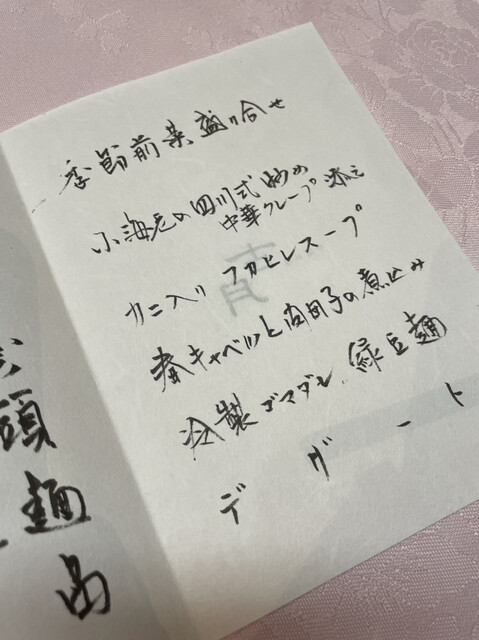 季節前菜盛り合せ
小海老の四川式炒め
中華クレープ添え
カニ入りフカヒレスープ
春キャベツと肉団子の煮込み
冷製ゴマダレ、緑豆麺
デザート
頭
麺